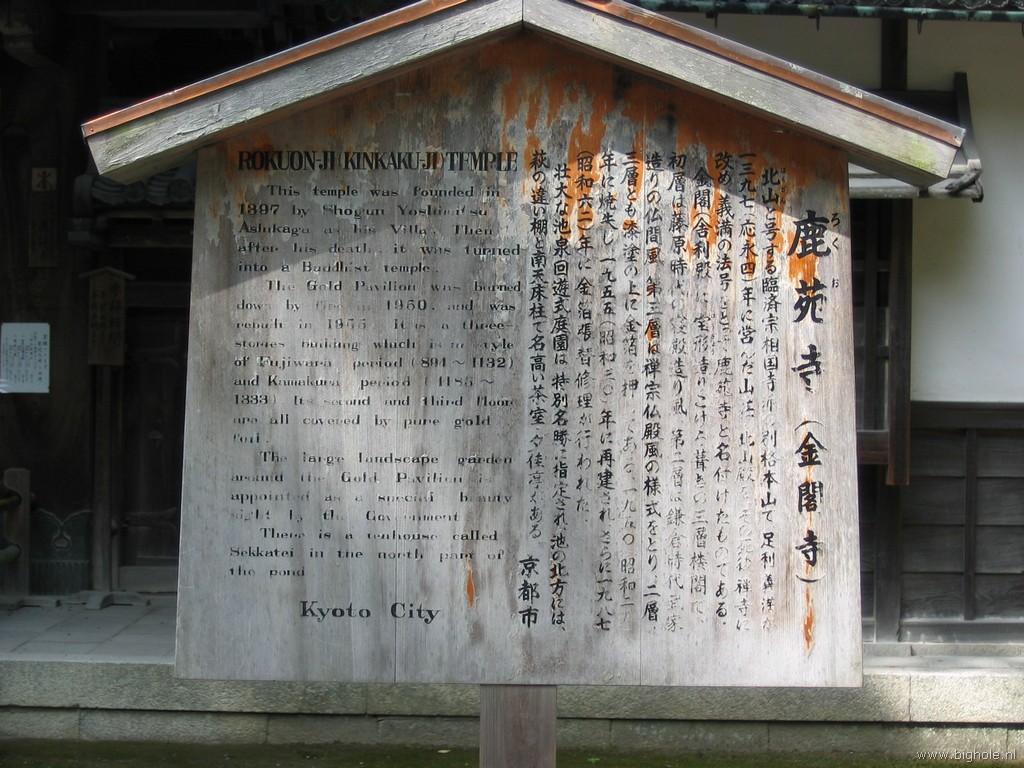 ROKUON-JI (KINKAKU-JI) TEMPLE
This temple was founded in
1397 by Shogun Yoshimitsu
Ashikaga as his Villa. Then,
after his death, it was turned
into a Buddhist temple.
The Gold Pavilion was burned
down by fire in 1950, and was
rebuilt in 1955. It is a three-
stories building which is in style
of Fujiwara period (894~1132)
and Kamakura period (1185~
1333) Its second and third floor
are all covered by pure gold
foil.
The large landscape garden
around the Gold Pavilion is
appointed as a special beauty
sight by the Government
There is a teahouse called
Sekkatei in the north part of
the pond
Kyoto City
鹿苑寺(金閣寺)
ろく おん
北山と号する臨済宗相国寺派の別格本山で、足利義満が
一三九七(応永四)年に営んだ山荘 北山殿を、その死後禅寺に
改め、義満の法号をとって鹿苑寺と名付けたものである。
金閣(舎利殿)は、宝形造りこけら葺きの三層楼閣で、
初層は藤原時代の寝殿造り風、第二層は鎌倉時代武家
造りの仏間風、第三層は禅宗仏殿風の様式をとり、二層、
三層とも漆塗の上に金箔を押してある。一九五〇(昭和二
年に焼失し、一九五五(昭和三〇)年に再建され、さらに一九八七
(昭和六二)年に金箔張替修理が行われた。
壮大な池泉回遊式庭園は、特別名勝に指定され、池の北方には、
萩の違い棚と南天床柱で名高い茶室 夕佳亭がある。
京都市
www.bighole.nl